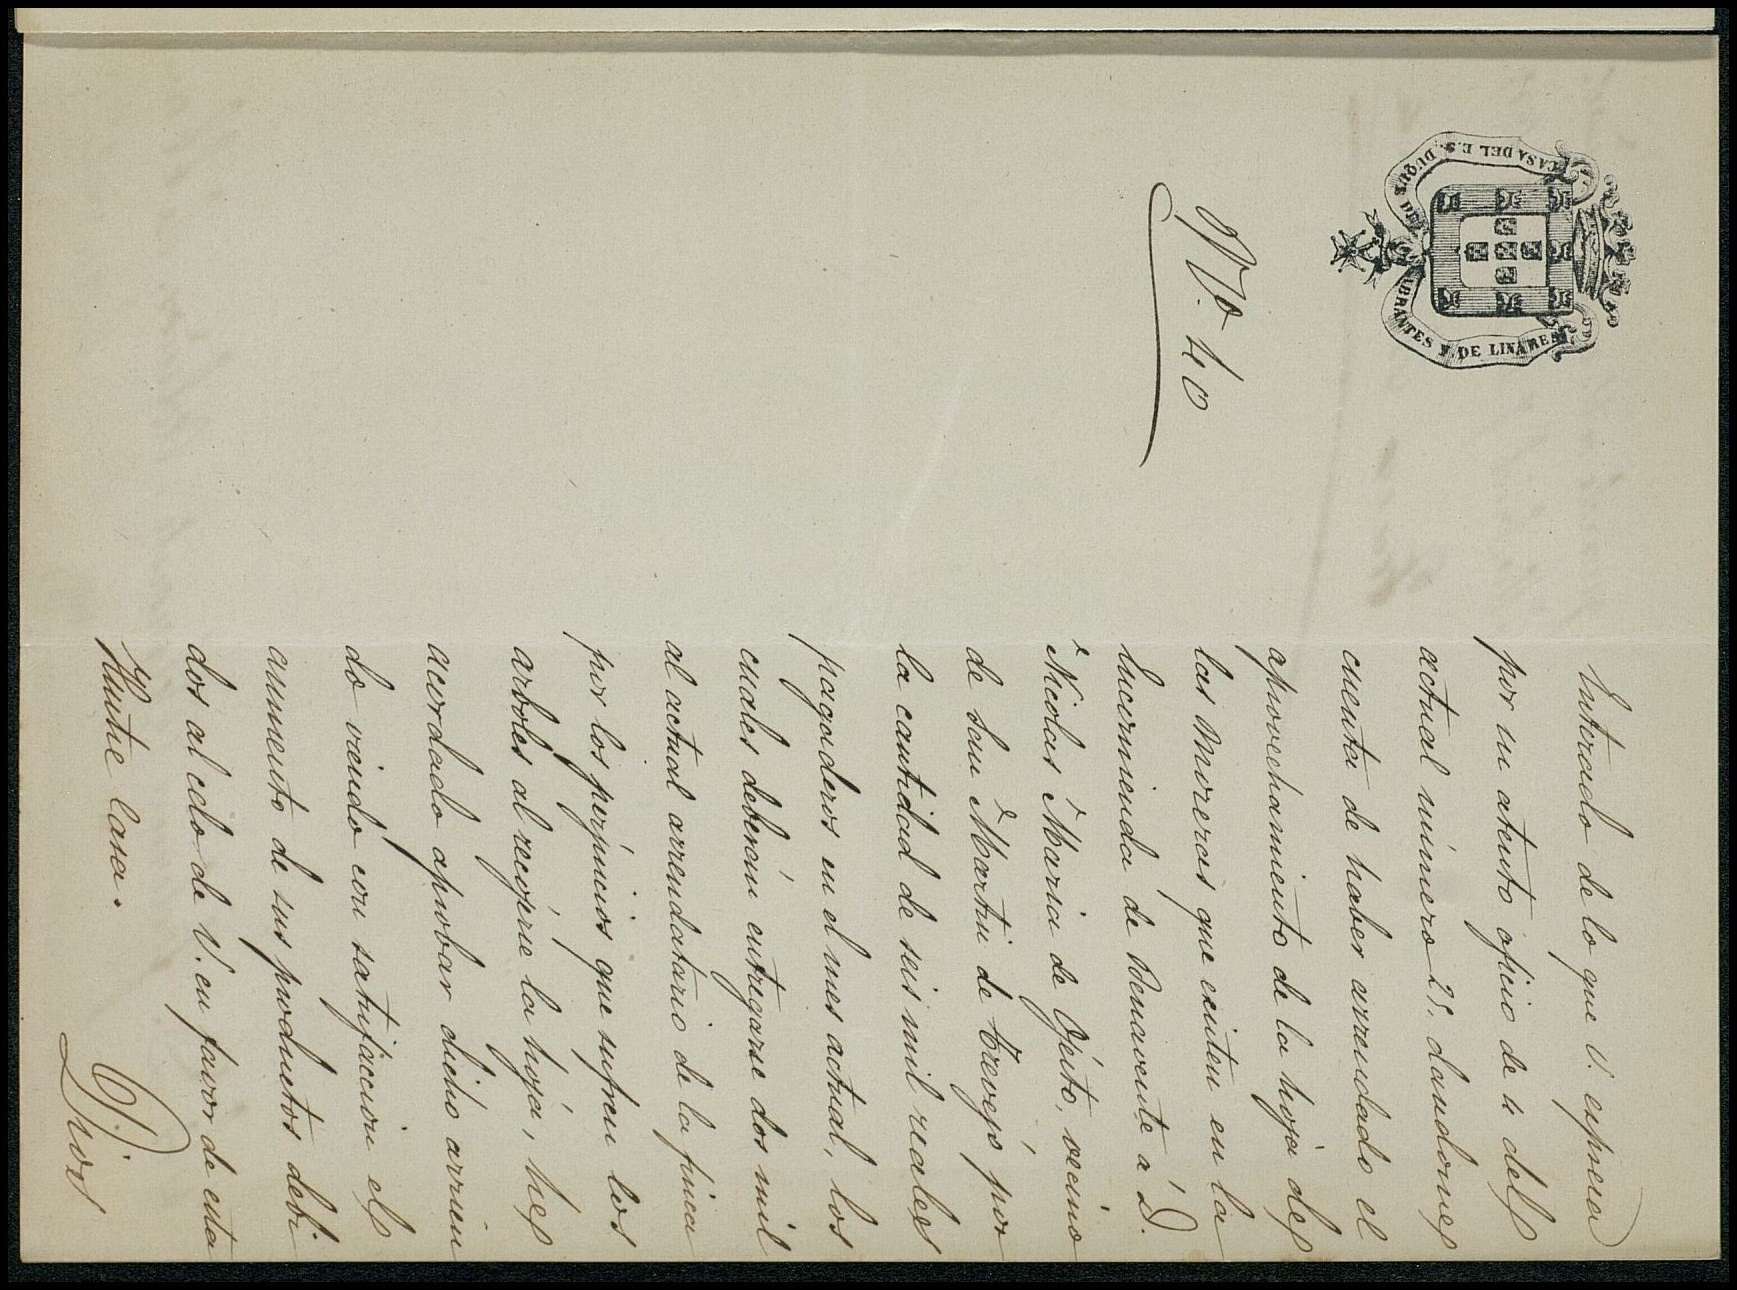 CASA DEL E.S. DUQUE DE ABRANTES Y DE LINARES
N.º 40
Enterado de lo que V. espresa
por su atento oficio de 4 del
actual número 28. dandome
cuenta de haber arrendado el
aprovechamiento de la hoja de
las moreras que existen en la
Encomienda de Benavente á D.
Nicolas Maria de Ojesto, vecino
de San Martin de Trevejo por
la cantidad de seis mil reales
pagaderos en el mes actual, los
cuales deberán entregarse dos mil
al actual arrendatario de la finca
por los perjuicios que sufren los
arboles al recojerse la hoja, he
acordado aprobar dicho arrien
do viendo con satisfaccion el
aumento de sus productos debi
dos al celo de V. en favor de esta
Ilustre Casa.
Dios